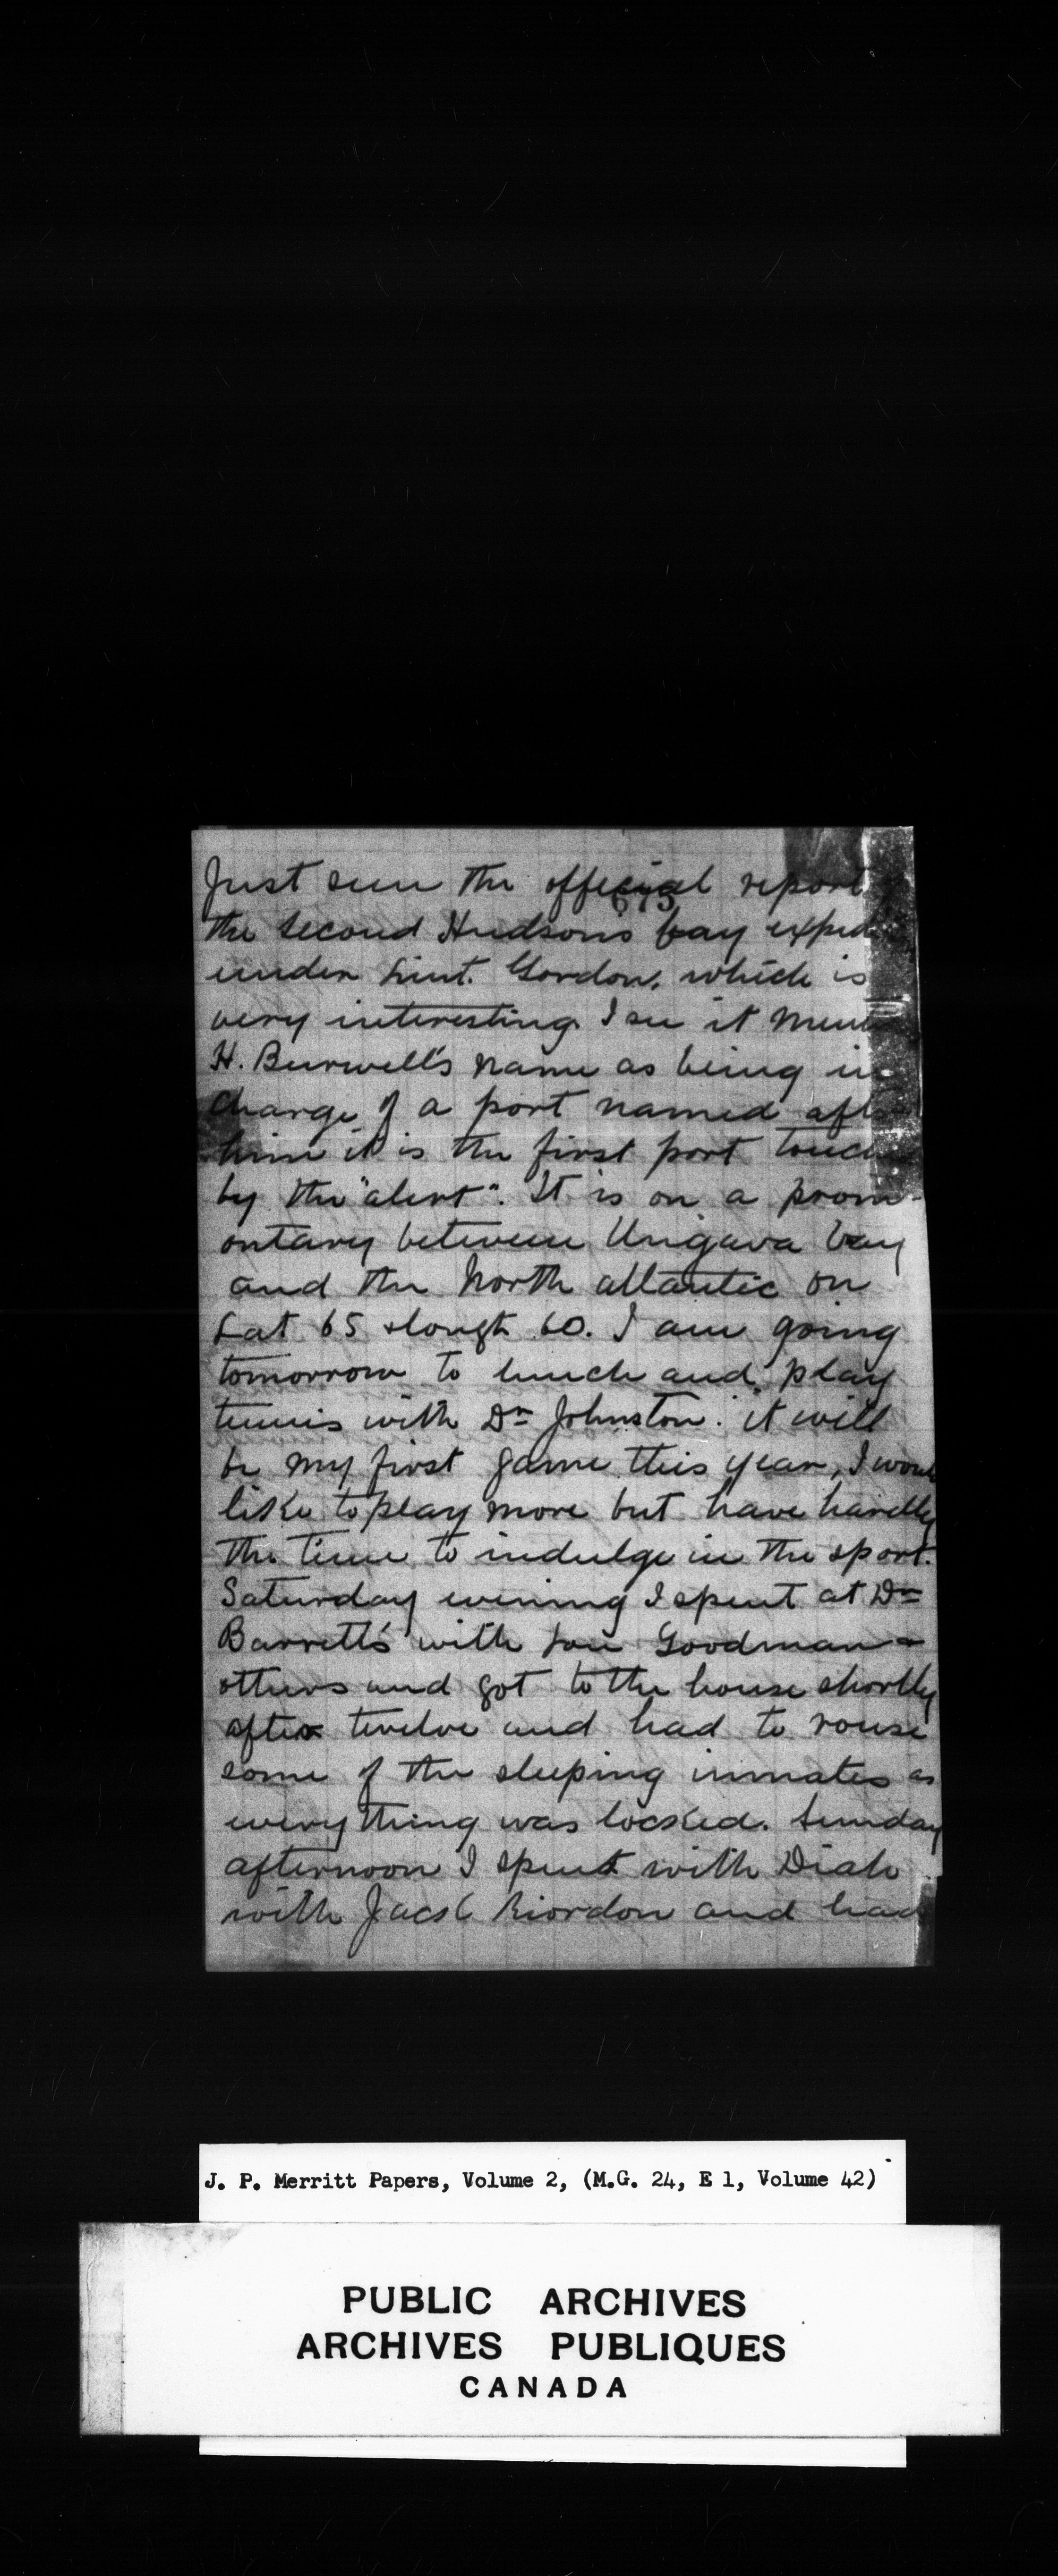 Just seen the official report
673
the second Hudsons bay exped
under Lieut. Gordon, which is
very interesting. I see it ment
H. Burwell's name as being in
charge of a port named aft
him it is the first port touch
by the "alert". It is on a prom-
ontary between Ungava bay
and the North atlantic on
Lat 65 & longt 60. I am going
tomorrow to lunch and play
tennis with Dr Johnston. it will
be my first game this year, I woul
like to play more but have hardly
the time to indulge in the sport.
Saturday evening I spent at Dr
Barrett's with Goodman &
others and got to the house shortly
after twelve and had to rouse
some of the sleeping inmates as
every thing was locked. Sunday
afternoon I spent with
with Jack Riordon and had
J. P. Merritt Papers, Volume 2, (M.G. 24, E 1, Volume 42)
PUBLIC ARCHIVES
ARCHIVES PUBLIQUES
CANADA